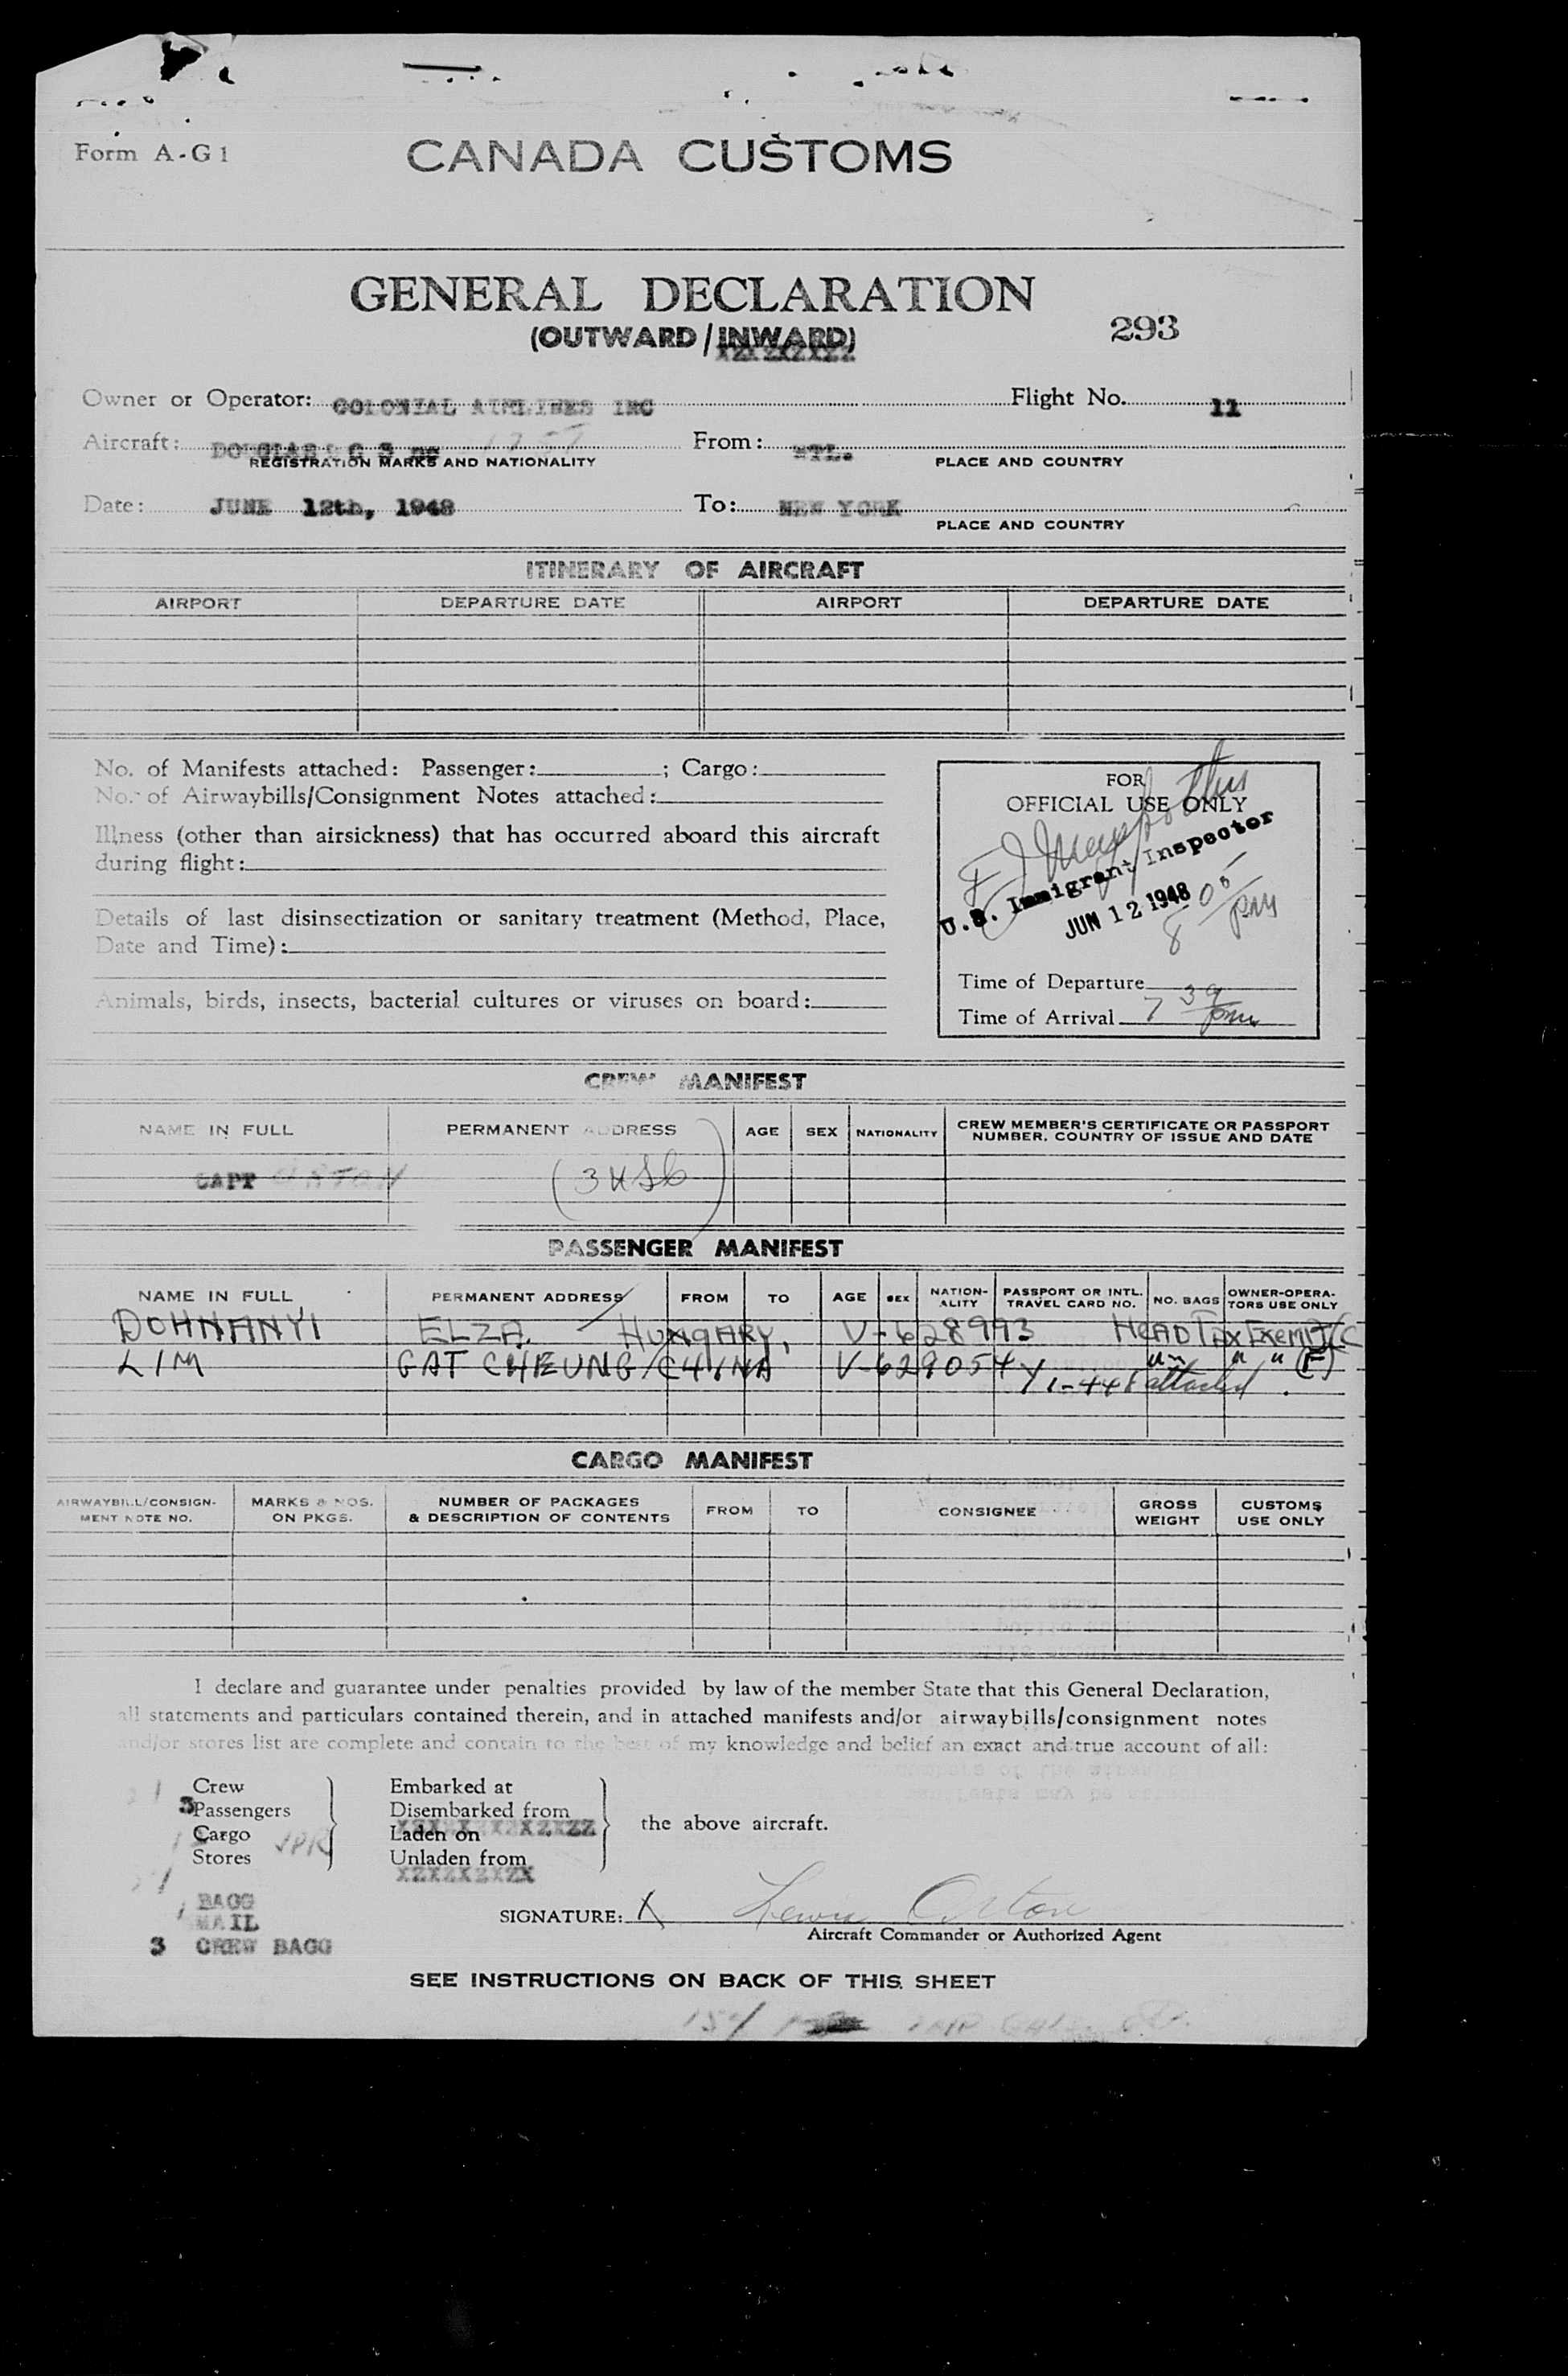 Form A-G1
CANADA CUSTOMS
GENERAL DECLARATION
(OUTWARD / INWARD)
293
Owner or Operator: COLONIAL AIRLINES INC Flight No. 11
Aircraft: DOUGLAS From: MTL.
REGISTRATION MARKS AND NATIONALITY PLACE AND COUNTRY
Date: JUNE 12th, 1948 To: NEW YORK
PLACE AND COUNTRY
ITINERARY OF AIRCRAFT
AIRPORT DEPARTURE DATE AIRPORT DEPARTURE DATE
No. of Manifests attached: Passenger: ; Cargo:
No. of Airwaybills/Consignment Notes attached:
Illness (other than airsickness) that has occurred aboard this aircraft
during flight:
Details of last disinsectization or sanitary treatment (Method, Place,
Date and Time):
Animals, birds, insects, bacterial cultures or viruses on board:
FOR
OFFICIAL USE ONLY
U.S. Immigrant Inspector
JUN 12 1948
8 05 pm
Time of Departure
Time of Arrival 7 39 pm
CREW MANIFEST
NAME IN FULL PERMANENT ADDRESS AGE SEX NATIONALITY CREW MEMBER'S CERTIFICATE OR PASSPORT
NUMBER, COUNTRY OF ISSUE AND DATE
CAPT ORTON
PASSENGER MANIFEST
NAME IN FULL PERMANENT ADDRESS FROM TO AGE SEX NATION-
ALITY PASSPORT OR INTL.
TRAVEL CARD NO. NO. BAGS OWNER-OPERA-
TORS USE ONLY
DOHNANYI ELZA. HUNGARY, V-628993 HEAD TAX Exempt
LIM GAT CHEUNG/CHINA V-629054 " " " " (F)
1-448 attached.
CARGO MANIFEST
AIRWAYBILL/CONSIGN-
MENT NOTE NO. MARKS & NOS.
ON PKGS. NUMBER OF PACKAGES
& DESCRIPTION OF CONTENTS FROM TO CONSIGNEE GROSS
WEIGHT CUSTOMS
USE ONLY
I declare and guarantee under penalties provided by law of the member State that this General Declaration,
all statements and particulars contained therein, and in attached manifests and/or airwaybills/consignment notes
and/or stores list are complete and contain to the best of my knowledge and belief an exact and true account of all:
Crew Embarked at
3 Passengers Disembarked from
Cargo Laden on the above aircraft.
Stores Unladen from
BAGG
MAIL
3 CREW BAGG
SIGNATURE: X Lewis Orton
Aircraft Commander or Authorized Agent
SEE INSTRUCTIONS ON BACK OF THIS SHEET